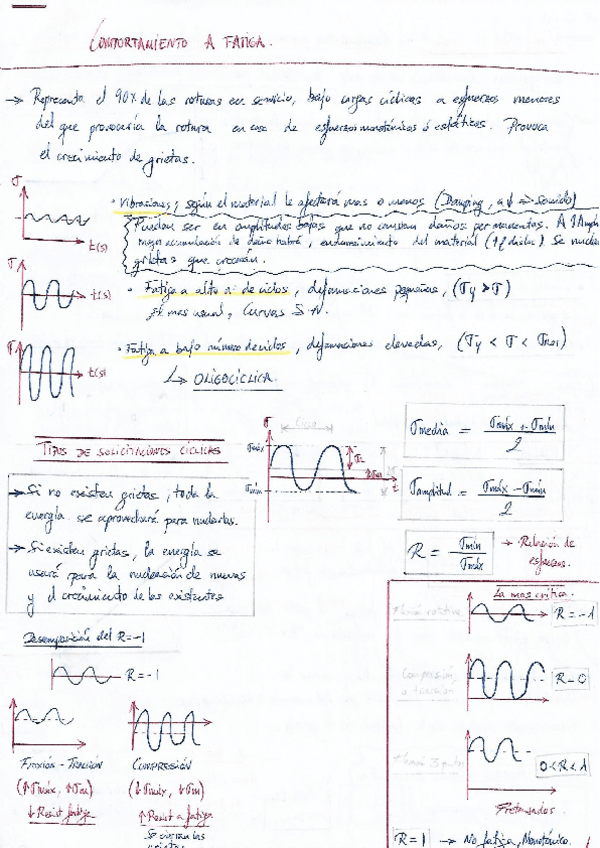 COMPORTAMIENTO A FATIGA.
→ Representa el 90% de las roturas en servicio, bajo cargas cíclicas a esfuerzos menores
del que provocaría la rotura en caso de esfuerzos monotónicos ó estáticos. Provoca
el crecimiento de grietas.
σ
t(s)
• Vibraciones; según el material le afectará mas o menos (Damping, a ↓ → Sonido)
Pueden ser en amplitudes bajas que no causan daños por momentos. A ↑
mayor acumulación de daño habrá, endurecimiento del material (↑ρ disloc) Se
grietas que crecerán.
σ
t(s)
• Fatiga a alto nº de ciclos, deformaciones pequeñas, (σy > σ)
El mas usual, Curvas S-N.
σ
t(s)
• Fatiga a bajo número de ciclos, deformaciones elevadas, (σy < σ <
↳ OLIGOCÍCLICA.
TIPOS DE SOLICITACIONES CÍCLICAS
σ
Ciclo
σmáx
σmín
t
σmedia = σmáx + σmín / 2
σamplitud = σmáx - σmín / 2
R = σmín / σmáx → Relación de
esfuerzos.
→ Si no existen grietas, toda la
energía se aprovechará para nuclearlas.
→ Si existen grietas, la energía se
usará para la nucleación de nuevas
y el crecimiento de las existentes
Descomposición del R=-1
R=-1
FLEXIÓN - TRACCIÓN
(↑σmáx, ↑σm)
↓ Resist fatiga
COMPRESIÓN
(↓σmáx, ↓σm)
↑ Resist a fatiga
Se cierran las
grietas
La mas crítica.
Flexión rotativa
R=-1
Compresión,
o tracción
R=0
Flexión 3 puntos
0<R<1
Pretensados.
R=1 → No fatiga, Monotónico.